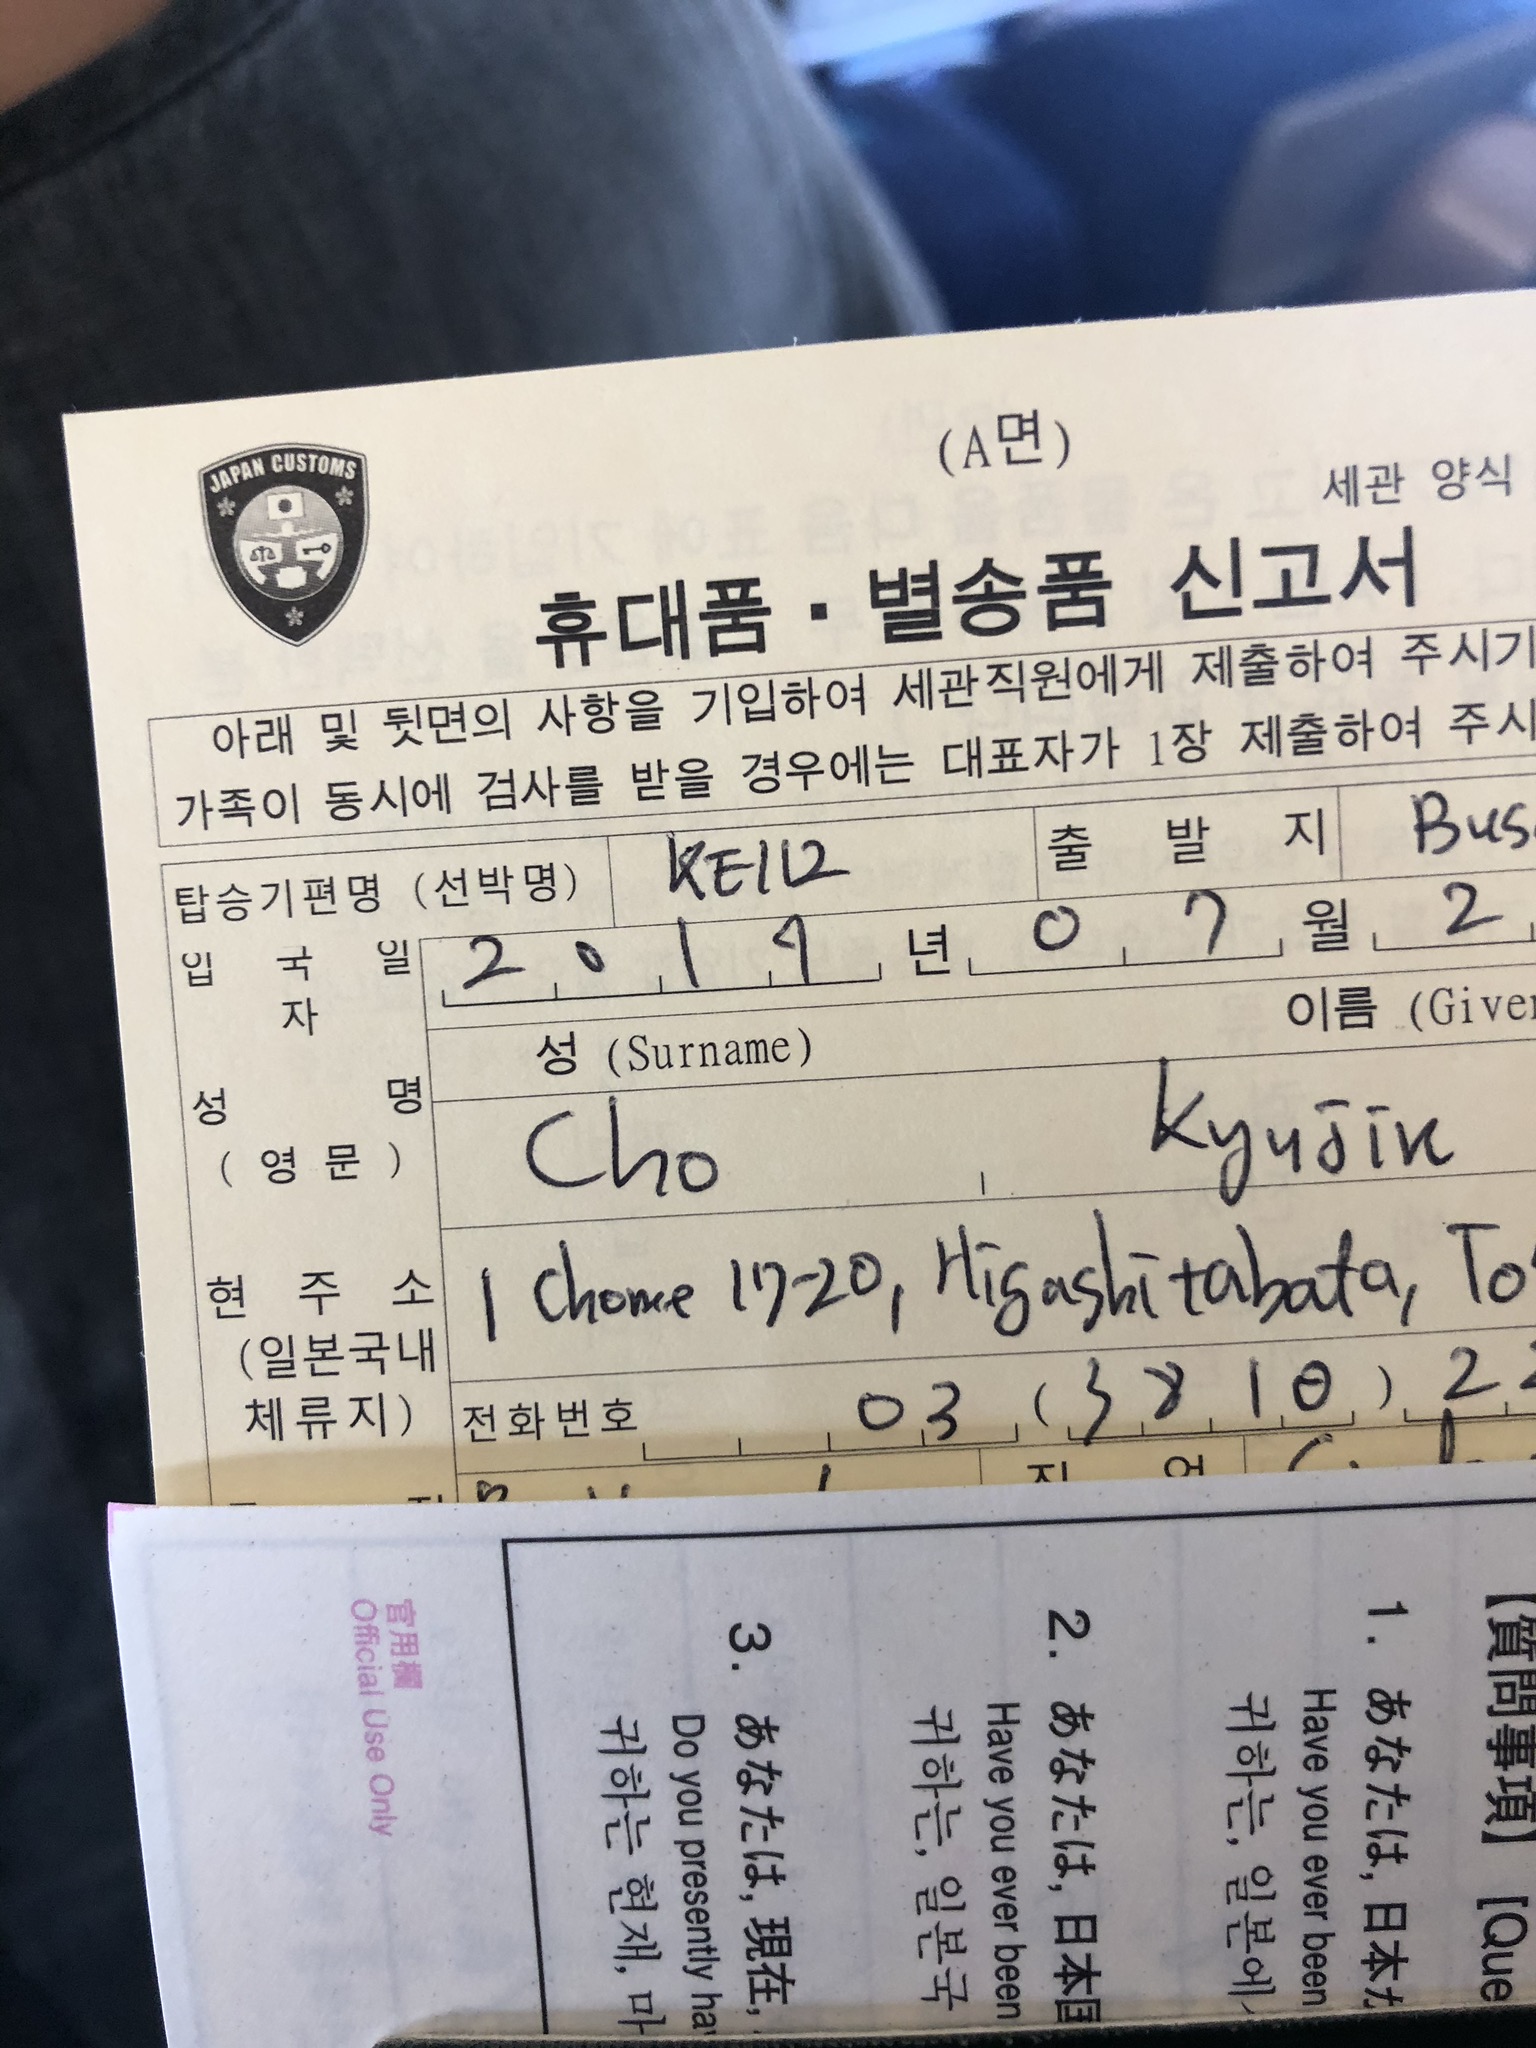 JAPAN CUSTOMS
(A면)
세관 양식
휴대품 · 별송품 신고서
아래 및 뒷면의 사항을 기입하여 세관직원에게 제출하여 주시기
가족이 동시에 검사를 받을 경우에는 대표자가 1장 제출하여 주시
탑승기편명 (선박명) KE112 출 발 지 Bus
입 국 일 자 2 0 1 9 년 0 7 월 2
성 (Surname) 이름 (Given
성 명 (영문) Cho Kyujin
현 주 소 1 Chome 17-20, Higashitabata, To
(일본국내
체류지) 전화번호 03 (3810) 22
직 업
官用欄
Official Use Only
【質問事項】 [Que
1. あなたは, 日本
Have you ever been
귀하는, 일본에
2. あなたは, 日本国
Have you ever been
귀하는, 일본국
3. あなたは, 現在,
Do you presently ha
귀하는 현재, 마